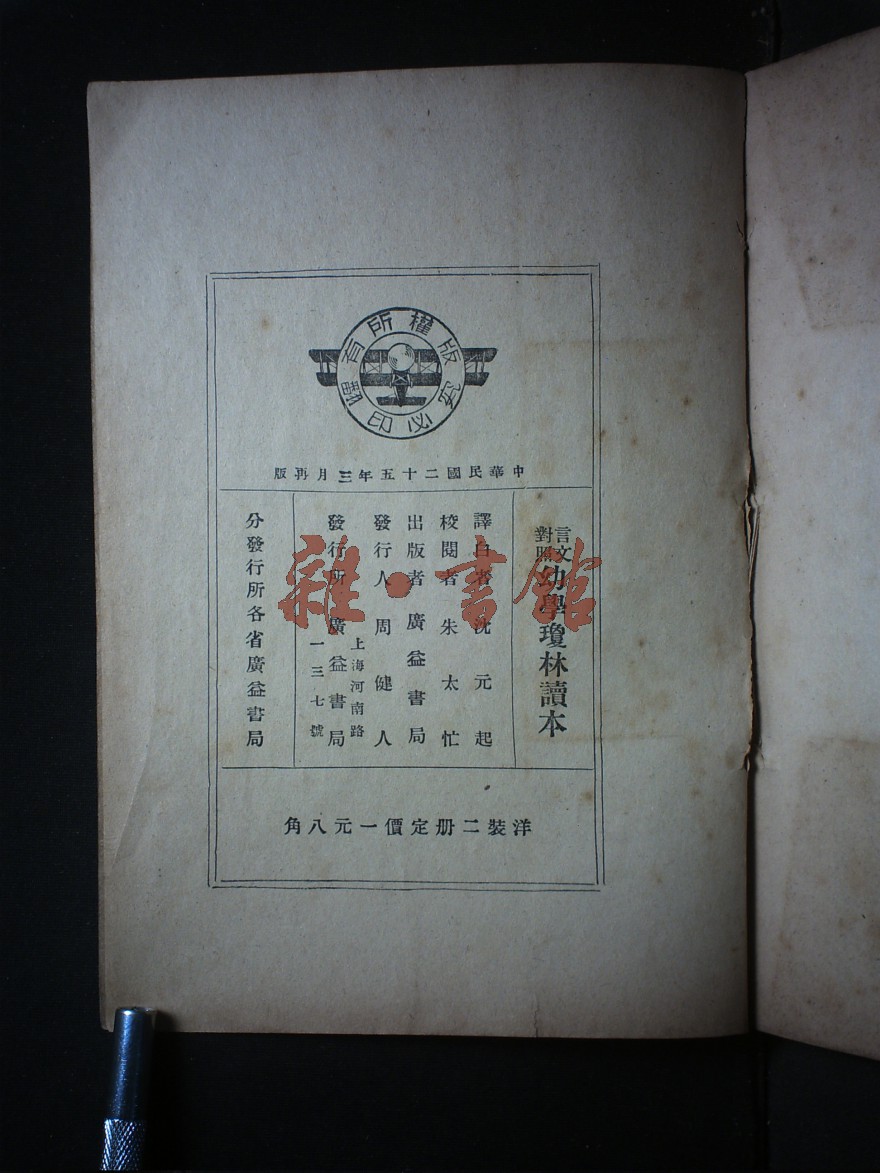 版權所有
翻印必究
中華民國二十五年三月再版
言文對照幼學瓊林讀本
譯白者沈元起
校閱者朱太忙
出版者廣益書局
發行人周健人
上海河南路
發行所廣益書局
一三七號
分發行所各省廣益書局
洋裝二册定價一元八角
雜·書館